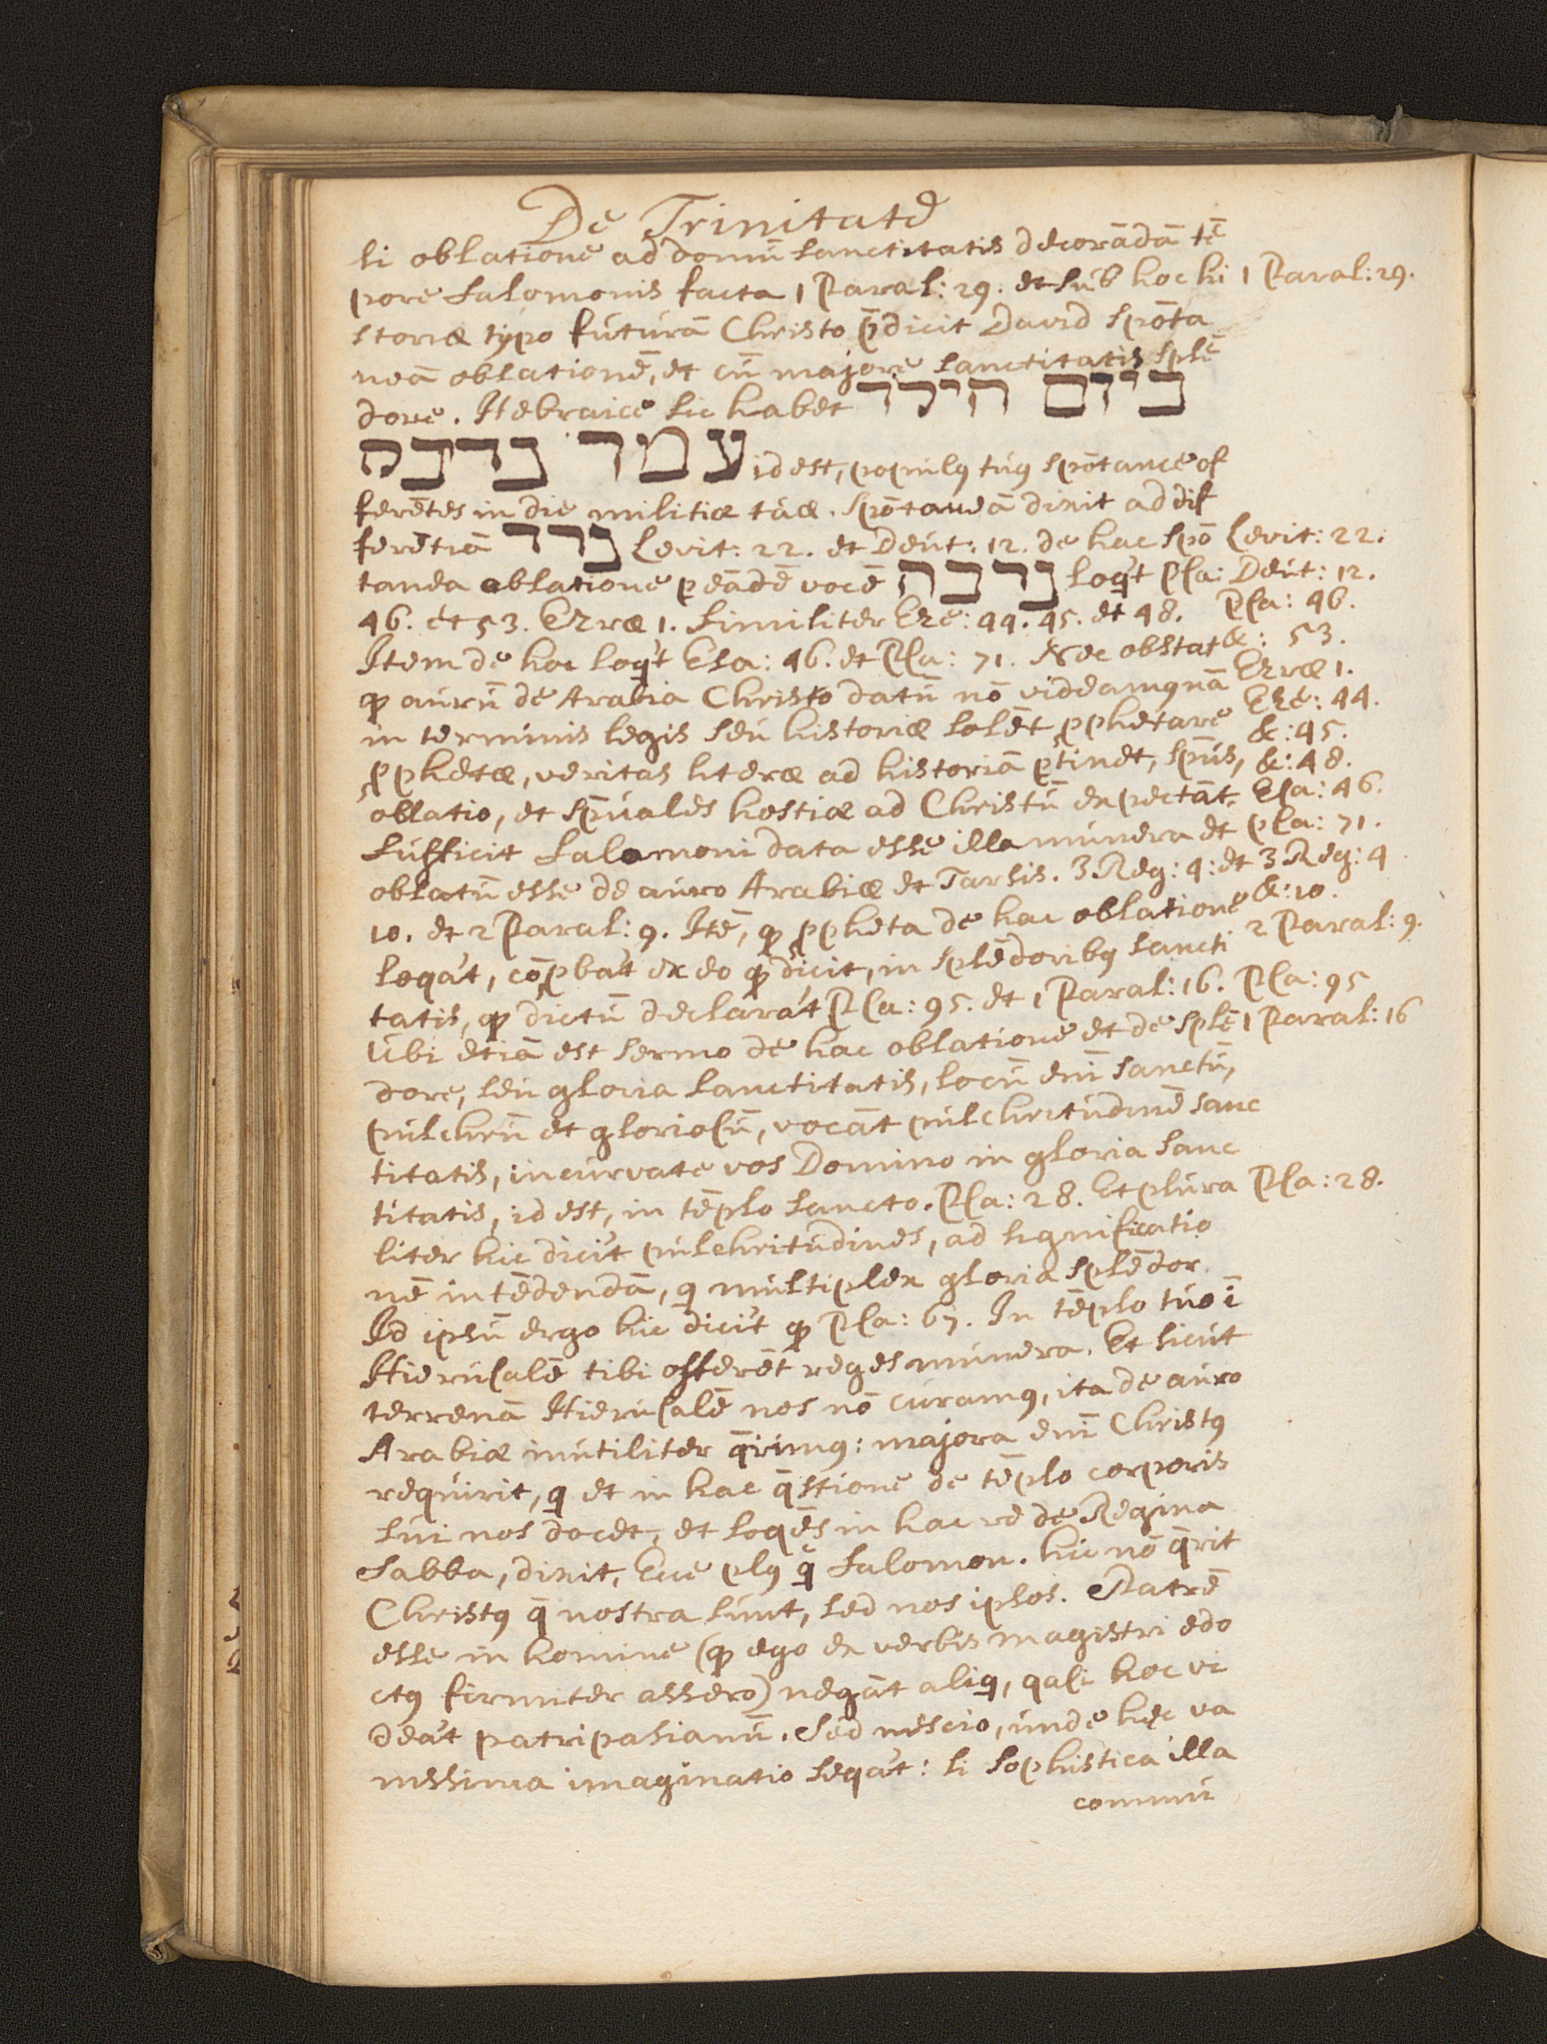 De Trinitate
li oblatione ad domū sanctitatis decorādā tē
pore Salomonis facta 1 Paral: 29. et sub hoc hi 1 Paral: 29.
storiæ typo futurā Christo p̄dicit David spōta
neā oblationē, et cū majore sanctitatis splē
dore. Hebraice sic habet ביום הילך
עמך נדבה id est, populꝰ tuꝰ spōtance of
ferētes in die militiæ tuæ. Spōtaneā dixit ad dif
ferētiā נדר Levit: 22. et Deut: 12. de hac spō Levit: 22.
tanea oblatione ꝑ eādē vocē נדבה loqt̄ Psa: Deut: 12.
46. et 53. Ezræ 1. Similiter Eze: 44. 45. et 48. Psa: 46.
Item de hac loqt̄ Esa: 46. et Psa: 71. Nec obstat &: 53.
ꝙ aurū de Arabia Christo datū nō videamꝰ nā Ezræ 1.
in terminis legis seu historiæ solēt ꝓphetare Eze: 44.
ꝓphetæ, veritas literæ ad historiā ꝑtinet, spūs, &: 45.
oblatio, et spūales hostiæ ad Christū expectāt. &: 48.
Sufficit Salomoni data esse illa munera et Esa: 46.
oblatū esse de auro Arabiæ et Tarsis. 3. Reg: 4: et Psa: 71.
10. et 2 Paral: 9. Itē, ꝙ ꝓpheta de hac oblatione 3. Reg: 4
loqat, cōꝓbat ex eo ꝙ dicit, in splēdoribꝰ sancti &: 10.
tatis, ꝙ dictū declarat Psa: 95. et 1 Paral: 16. 2 Paral: 9.
Ubi etiā est sermo de hac oblatione et de splē Psa: 95
dore, seu gloria sanctitatis, locū enī sanctū, 1 Paral: 16
pulchrū et gloriosū, vocāt pulchritudinē sanc
titatis, incurvate vos Domino in gloria sanc
titatis, id est, in tēplo sancto. Psa: 28. Et plura Psa: 28.
liter hic dicit pulchritudines, ad significatio
nē intēdendā, q multiplex gloria splēdor.
Id ipsū ergo hic dicit ꝙ Psa: 67. In tēplo tuo ī
Hierusalē tibi offerēt reges munera. Et sicut
terrenā Hierusalē nos nō curamꝰ, ita de auro
Arabiæ inutiliter q̄rimꝰ: majora enī Christꝰ
requirit, q et in hac q̄stione de tēplo corporis
sui nos docet, et loqēs in hac re de Regina
Sabba, dixit, Ecce plꝰ q̄ Salomon. hic nō q̄rit
Christꝰ q̄ nostra sunt, sed nos ipsos. Patrē
esse in homine (ꝙ ego ex verbis magistri edo
ctꝰ firmiter assero) negāt aliq, qasi hoc vi
deat patripasianū. Sed nescio, unde hęc va
nissima imaginatio seqat: si sophistica illa
commu